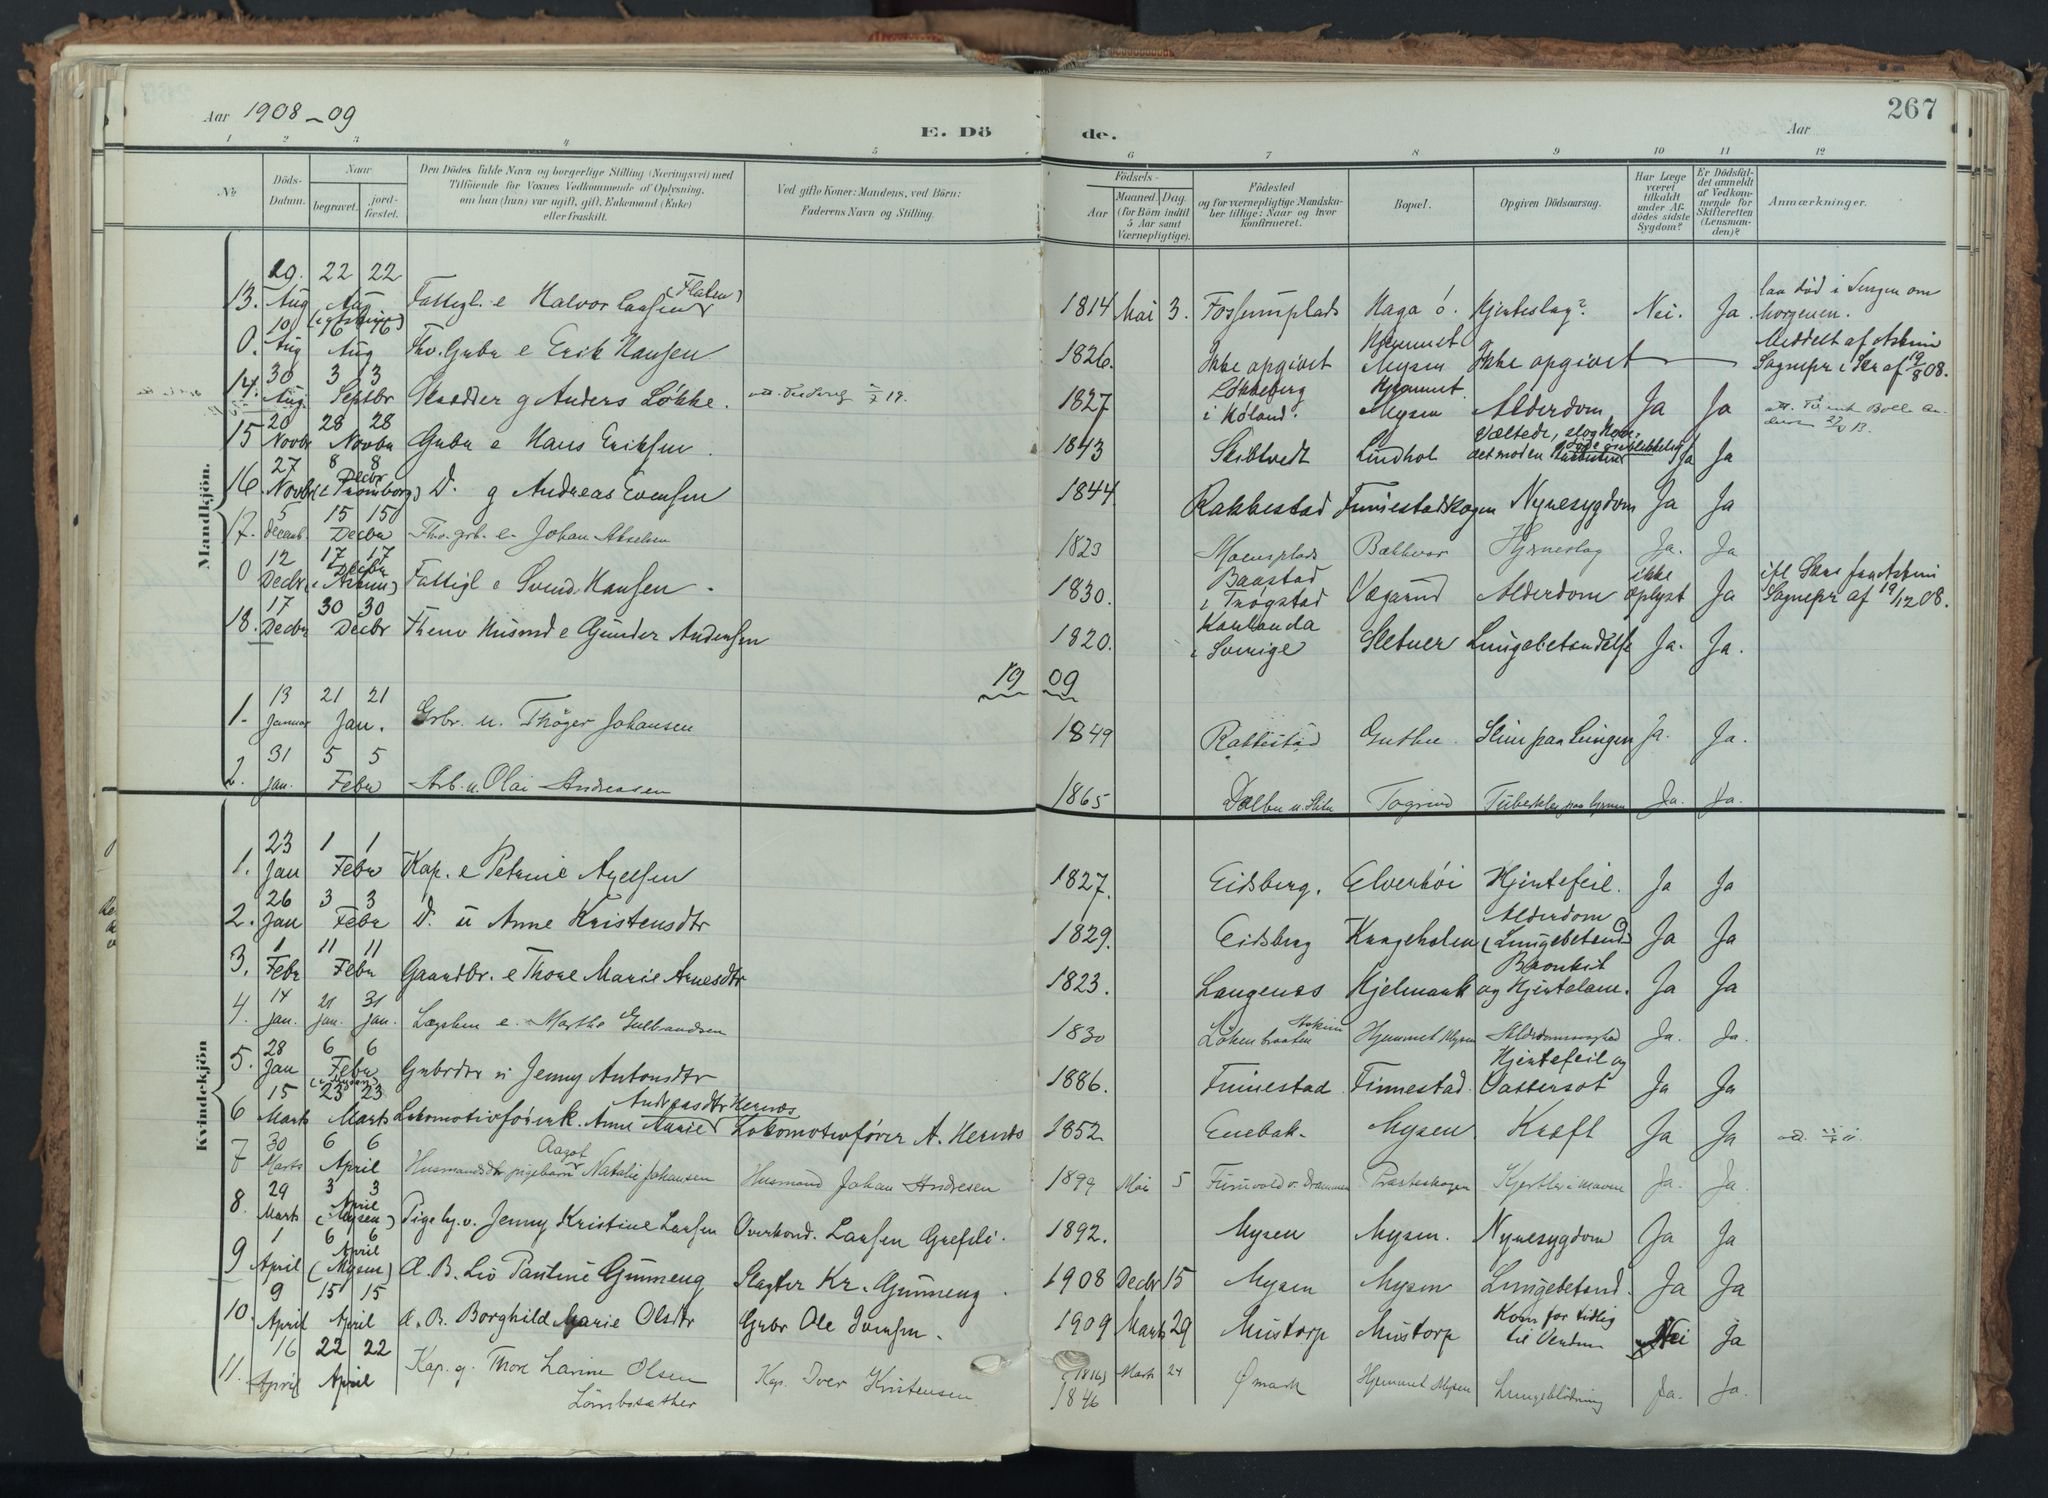 Aar 1908-09
E. Dö de.
Aar
267
1 2 3 4 5 6 7 8 9 10 11 12
No
Döds-Datum.
Naar
begravet.
jord-fæstet.
Den Dödes fulde Navn og borgerlige Stilling (Næringsvei) med
Tilföiende for Voxnes Vedkommende af Oplysning,
om han (hun) var ugift, gift, Enkemand (Enke)
eller fraskilt.
Ved gifte Koner: Mandens, ved Börn:
Faderens Navn og Stilling.
Födsels-
Aar
Maaned. Dag.
(for Börn indtil
5 Aar samt
Værnepligtige).
Födested
og for værnepligtige Mandska-
ber tillige: Naar og hvor
konfirmeret.
Bopæl.
Opgiven Dödsaarsag.
Har Læge
været
tilkaldt
under Af-
dödes sidste
Sygdom?
Er Dödsfal-
det anmeldt
af Vedkom-
mende for
Skifteretten
(Lensman-
den)?
Anmærkninger.
Mandkjön.
13. 19. Aug 22 22 Aug Fattigl. e Halvor Larsen (Flaten) 1814 Mai 3. Fossumplads Haga ö. Hjerteslag? Nei. Ja laa död i Sengen om Morgenen.
0. 10 Aug 16 16 Aug Fhv. Gubr e Erik Hansen 1826. Ikke opgivet Hjemmet Mysen Ikke opgivet — — Meddelt af Askim Sognepr i Skr af 19/8 08.
14. 30 Aug. 3 3 Septbr Skrædder g Anders Løkke. 1827 Løkkeberg i Høland. Hjemmet Mysen Alderdom Ja Ja
15 20 Novbr 28 28 Novbr Gubr e Hans Eriksen 1843 Skibtvedt Lindhol Væltede, slog Hove- det mod en Ja Ja
16. 27 Novbr 8 8 Decbr (i Tromborg) D. g Andreas Evensen 1844 Rakkestad Finnestadskogen Nyresygdom Ja Ja
17. 5 Decemb. 15 15 Decbr Fhv. grb. e. Johan Akselsen 1823 Moensplads Bækkevar Hjerneslag Ja. Ja
0 12 Decbr 17 17 Decbr (Askim) Fattigl e Svend Hansen 1830. Baastad i Trøgstad Vegarud Alderdom ikke oplyst Ja ifl Skr fra Askim Sognepr af 19/12 08.
18. 17 Decbr 30 30 Decbr Fhenv Husmd e Gunder Andersen 1820. Karlanda i Sverige Sletner Lungebetændelse Ja. Ja.
19 09
1. 13 Januar 21 21 Jan. Grbr. u. Thøger Johansen 1849 Rakkestad Guthu. Slim paa Lungen Ja. Ja.
2. 31 Jan. 5 5 Febr Arb. u. Olai Andreasen 1865 Togrind Tuberkler paa hjernen Ja. Ja.
Kvindekjön
1. 23 Jan 1 1 Febr Kap. e Petrine Axelsen 1827. Eidsberg. Elverhöi Hjertefeil. Ja Ja
2. 26 Jan 3 3 Febr D. u Anne Kristensdtr 1829. Eidsberg Krageholen Alderdom (Lungebetænd) Ja Ja
3. 1 Febr 11 11 Febr Gaardbr. e Thore Marie Arnesdtr 1823. Langenæs Kjelmark Bronkit og Hjertelam. Ja Ja
4. 14 Jan. 21 31 Jan. Jan. Lægslem e. Marthe Gulbrandsen 1830 Løkenbraaten Askim Hjemmet Mysen Alderdomssvaghed Ja. Ja.
5. 28 Jan 6 6 Febr Gubrdtr u Jenny Antonsdtr 1886. Finnestad Finnestad. Hjertefeil og Vattersot Ja Ja
6 15 Marts 23 23 Marts Lokomotivførerk. Anne Marie Andreasdtr Hernæs Lokomotivfører A. Hernæs 1852 Enebak. Mysen. Kræft Ja Ja
7 30 Marts 6 6 April Husmandsdtr pigebarn Aagot Natalie Johansen Husmand Johan Andresen 1899 Mai 5 Furuvold v. Drammen Præsteskogen Kjertler i Maven Ja. Ja.
8. 29 Marts 3 3 April (Mysen) Pige hj. v. Jenny Kristine Larsen Overkond. Larsen Grefsli. 1892. Mysen Mysen. Nyresygdom Ja Ja
9 1 April 6 6 April (Mysen) A. B. Liv Pauline Gunneng Slagter Kr. Gunneng. 1908 Decbr 15 Mysen Mysen Lungebetænd. Ja Ja
10. 9 April 15 15 April A. B. Borghild Marie Olsdtr Gubr Ole Iversen. 1909 Marts 29 Mustorp Mustorp Kom for tidlig til Verden Nei Ja
11. 16 April 22 22 April Kap. g. Thore Larine Olsen Lømbosæther Kap. Iver Kristensen (1816) 1846 Marts 24 Ømark Hjemmet Mysen Lungeblödning Ja. Ja.